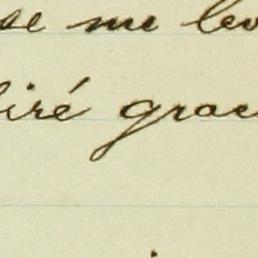 se me lev
iré grac